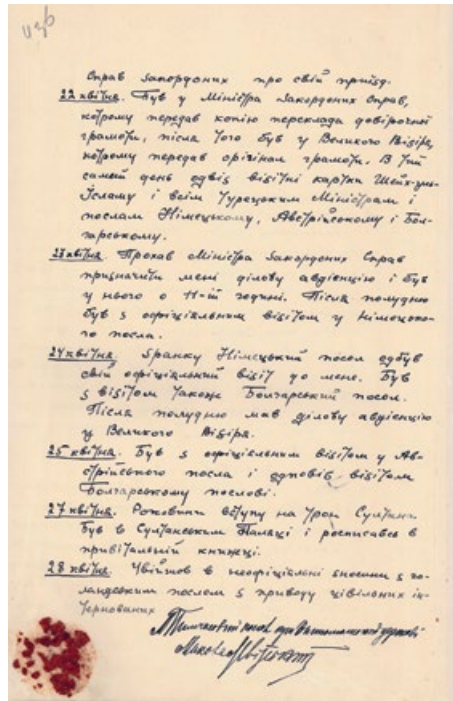 Справ закордоних про свій приїзд.
22 квітня. Був у Міністра Закордоних Справ,
котрому передав копію переклада довірочної
грамоти, після чого був у Великого Візіря,
котрому передав орігінал грамоти. В той
самий день одвіз візітні картки Шейх-уль-
Ісламу і всім Турецьким Міністрам і
послам Німецькому, Австрійському і Бол-
гарському.
23 квітня. Прохав Міністра Закордоних Справ
призначити мені ділову авдієнцію і був
у нього о 11-ій годині. Після полудню
був з офіціальним візітом у Німецько-
го посла.
24 квітня. Зранку Німецький посол одбув
свій офіціальний візіт до мене. Був
з візітом також Болгарський посол.
Після полудню мав ділову авдієнцію
у Великого Візіря.
25 квітня. Був з офіціальним візітом у Ав-
стрійського посла і одповів візітом
Болгарському послові.
27 квітня. Роковини вступу на трон Султана
був в Султанським Палаці і росписавсь в
привітальній книжці.
28 квітня. Увійшов в неофіціальні зносини з го-
ландським послом з приводу цівільних ін-
тернованих
Тимчасовий посол при Оттоманській державі
Микола